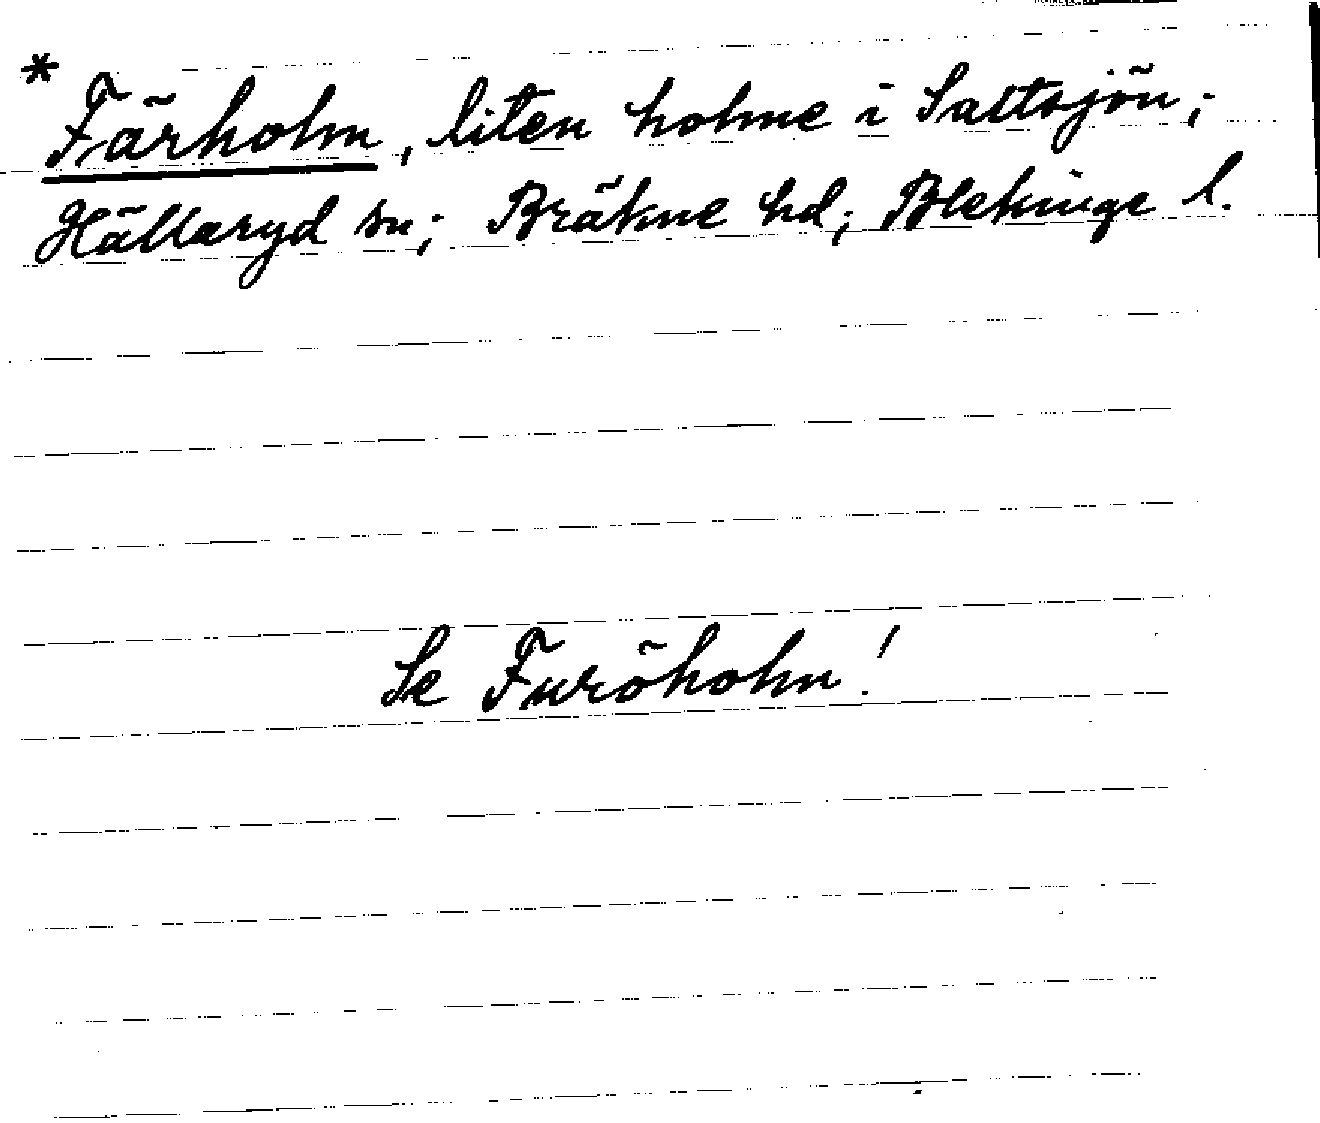 * Färholm, liten holme i Saltsjön;
Hällaryd sn; Bräkne hd; Blekinge l.
Se Furöholm!